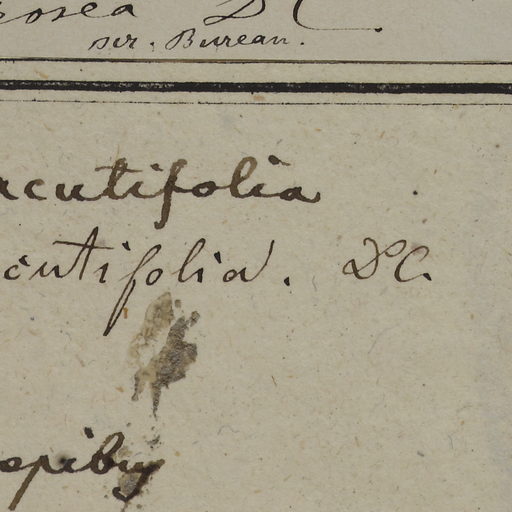 osea DC.
scr. Bureau.
acutifolia
cutifolia. DC.
spibus